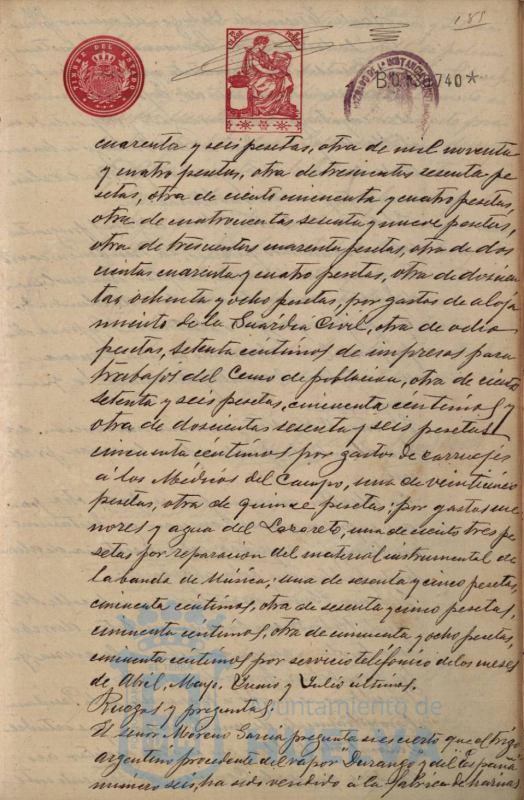 185
TIMBRE DEL ESTADO
B.0.130.740*
cuarenta y seis pesetas, otra de mil noventa
y cuatro pesetas, otra de trescientas sesenta pe
setas, otra de ciento cincuenta y cuatro pesetas,
otra de cuatrocientas sesenta y nueve pesetas,
otra de trescientas cuarenta pesetas, otra de dos
cientas cuarenta y cuatro pesetas, otra de doscien
tas ochenta y ocho pesetas, por gastos de aloja
miento de la Guardia Civil, otra de ocho
pesetas, setenta céntimos de impresos para
trabajos del Censo de población, otra de ciento
setenta y seis pesetas, cincuenta céntimos y
otra de doscientas sesenta y seis pesetas
cincuenta céntimos por gastos de carruajes
á los Médicos del Campo, una de veinticinco
pesetas, otra de quince pesetas; por gastos me
nores y agua del Lazareto, una de ciento tres pe
setas por reparacion del material instrumental de
la banda de Música; una de sesenta y cinco pesetas,
cincuenta céntimos, otra de sesenta y cinco pesetas,
cincuenta céntimos, otra de cincuenta y ocho pesetas,
cincuenta céntimos por servicio telefónico de los meses
de Abril, Mayo, Junio y Julio últimos.
Ruegos y preguntas.
Ayuntamiento de
El señor Moreno García pregunta si es cierto que el trigo
argentino procedente del vapor "Durango" y del
número seis, ha sido vendido á la fábrica de harinas